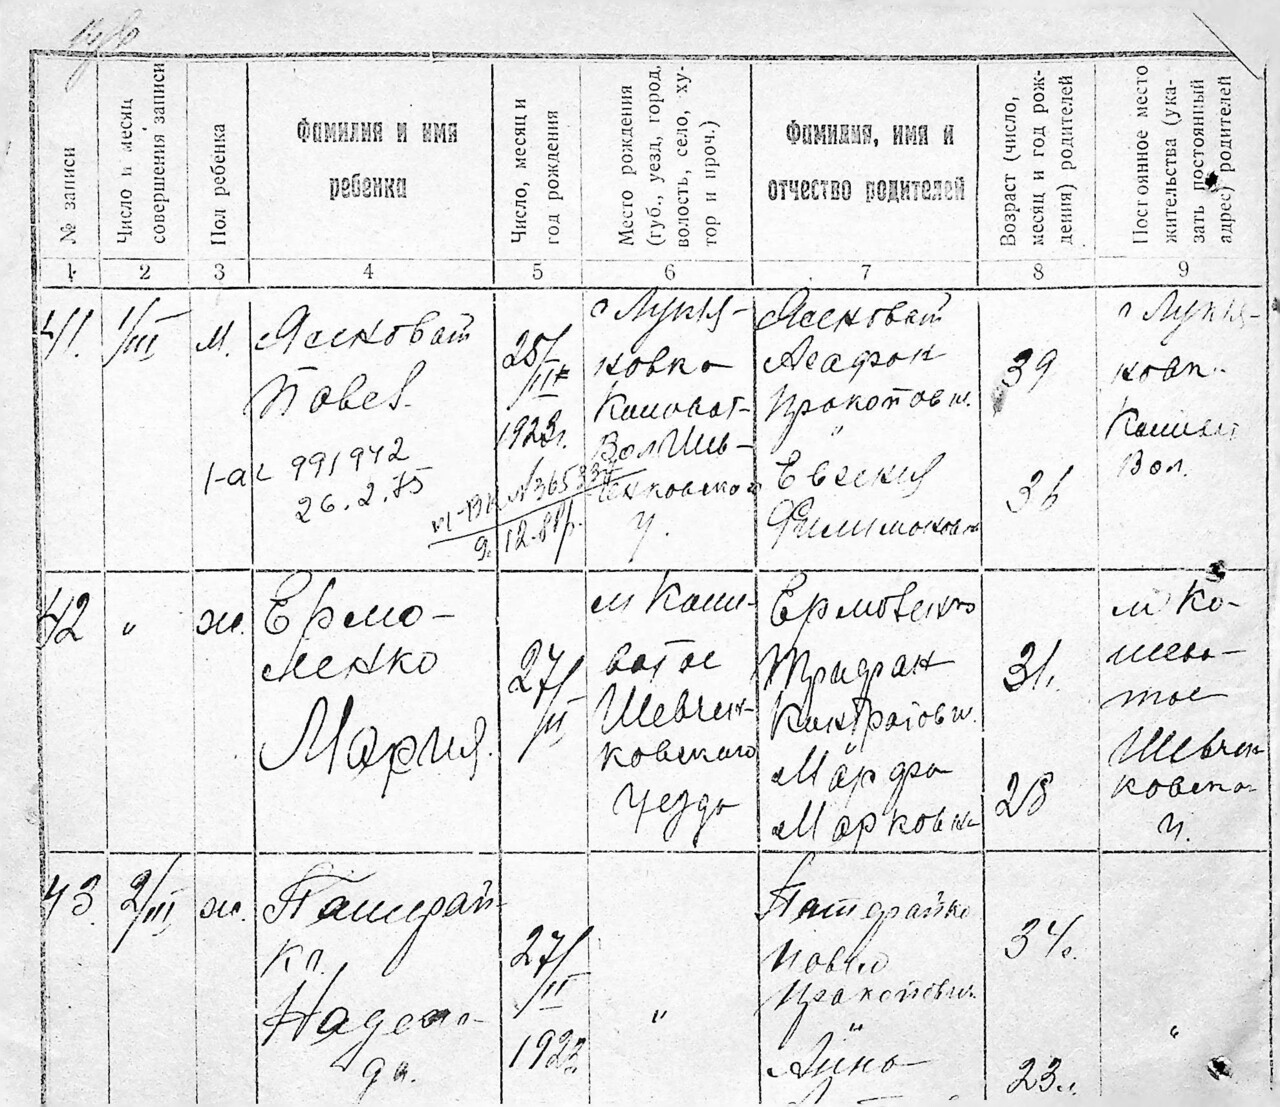 № записи
Число и месяц
совершения записи
Пол ребенка
Фамилия и имя
ребенка
Число, месяц и
год рождения
Место рождения
(губ., уезд, город,
волость, село, ху-
тор и проч.)
Фамилия, имя и
отчество родителей
Возраст (число,
месяц и год рож-
дения) родителей
Постоянное место
жительства (ука-
зать постоянный
адрес) родителей
1 2 3 4 5 6 7 8 9
41.
1/III
м.
Ясковат
Павел.
991942
26.2.75
25/
1923г.
с Лукья-
новка
Кашоват-
Вол Шев-
ченковского
у.
№365334
9.12.81г.
Ясковат
Агафон
Прокопович.
Евгения
Филимоновн
39
36
с Лукья-
новк.
Кашоват
Вол.
42
"
ж.
Ермо-
ленко
Мария.
27/
II
м Каши-
ватое
Шевчен-
ковского
Уезда
Ермоленко
Трифон
Кондратович.
Марфа
Марковн
31.
28
м Ко-
шева-
тое
Шевчен
ковско-
у.
43.
2/III
ж.
Патрай-
ко.
Надеж-
да.
27/
II
1923.
"
Павло
Прокопович.
Анна
34г.
23г.
"